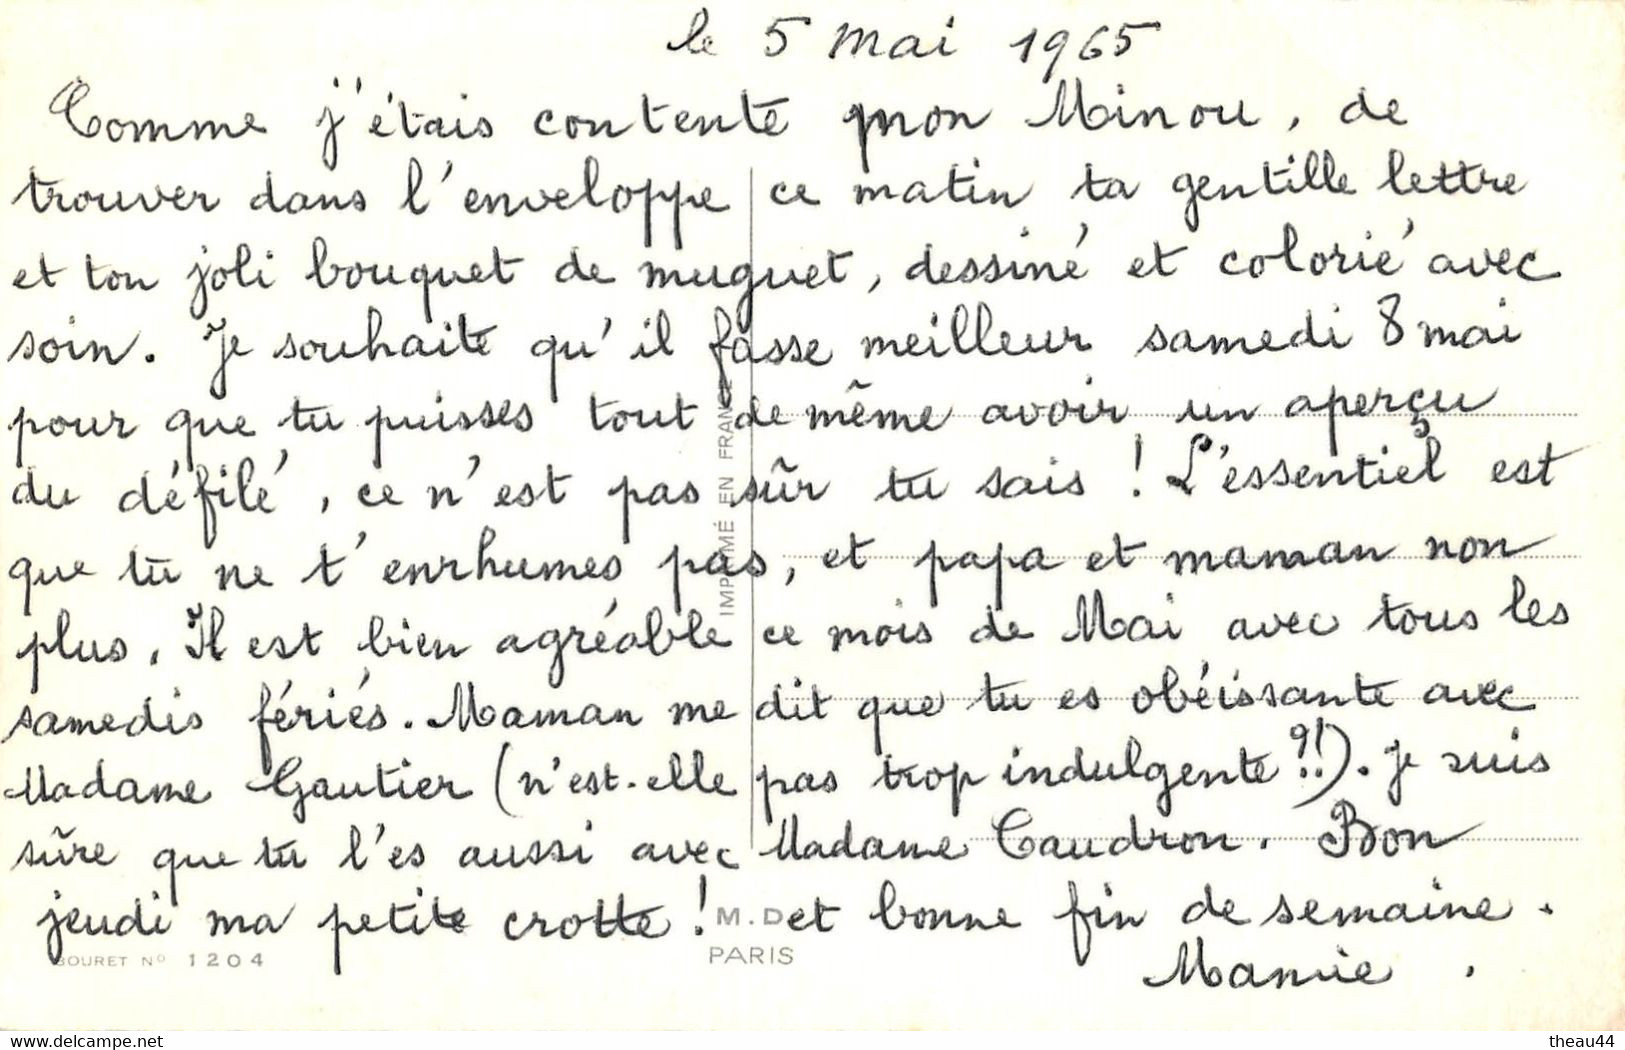 le 5 mai 1965
Comme j'étais contente mon Minou, de
trouver dans l'enveloppe ce matin ta gentille lettre
et ton joli bouquet de muguet, dessiné et colorié avec
soin. Je souhaite qu'il fasse meilleur samedi 8 mai
pour que tu puisses tout de même avoir un aperçu
du défilé, ce n'est pas sûr tu sais ! L'essentiel est
que tu ne t'enrhumes pas, et papa et maman non
plus. Il est bien agréable ce mois de Mai avec tous les
samedis fériés. Maman me dit que tu es obéissante avec
Madame Gautier (n'est-elle pas trop indulgente ?!!). Je suis
sûre que tu l'es aussi avec Madame Caudron. Bon
jeudi ma petite crotte ! et bonne fin de semaine.
Mamie.
IMPRIMÉ EN FRANCE
M. D
PARIS
BOURET Nº 1204
delcampe.net
theau44